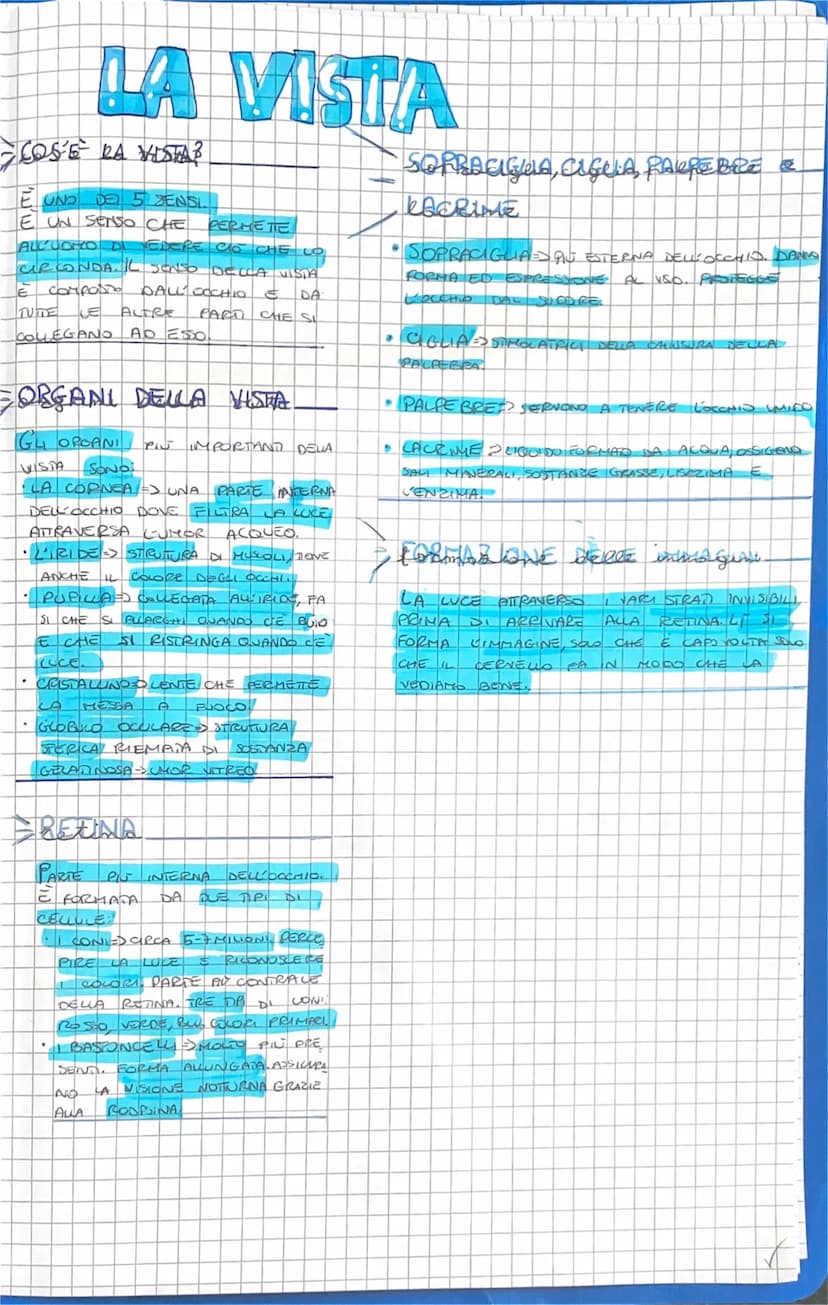 LA VISTA
COS'È LA VISTA?
È UNO DEI 5 SENSI.
È UN SENSO CHE PERMETTE
ALL'UOMO DI VEDERE CIÒ CHE LO
CIRCONDA. IL SENSO DELLA VISTA
È COMPOSTO DALL'OCCHIO E DA
TUTTE LE ALTRE PARTI CHE SI
COLLEGANO AD ESSO.
ORGANI DELLA VISTA
GLI ORGANI PIÙ IMPORTANTI DELLA
VISTA SONO:
· LA CORNEA => UNA PARTE INTERNA
DELL'OCCHIO DOVE FILTRA LA LUCE
ATTRAVERSA L'UMOR ACQUEO.
· L'IRIDE => STRUTURA DI MUSCOLI, DOVE
ANCHE IL COLORE DEGLI OCCHI.
· PUPILLA => COLLEGATA ALL'IRIDE, FA
SI CHE SI ALLARGHI QUANDO C'È BUIO
E CHE SI RISTRINGA QUANDO C'È
LUCE.
· CRISTALLINO => LENTE CHE PERMETTE
LA MESSA A FUOCO.
· GLOBULO OCULARE => STRUTURA
SFERICA RIEMPITA DI SOSTANZA
GELATINOSA => UMOR VITREO
RETINA
PARTE PIÙ INTERNA DELL'OCCHIO.
È FORMATA DA DUE TIPI DI
CELLULE:
· I CONI => CIRCA 5-7 MILIONI, PERCE
PIRE LA LUCE E RICONOSCERE
I COLORI. PARTE AD CONTRALE
DELLA RETINA. TRE TIPI DI CONI:
ROSSO, VERDE, BLU, COLORI PRIMARI.
· I BASTONCELLI => MOLTO PIÙ PRE
SENTI. FORMA ALLUNGATA. ASSICURA
NO LA VISIONE NOTTURNA GRAZIE
ALLA RODPSINA
SOPRACIGLIA, CIGLIA, PALPEBRE E
LACRIME
· SOPRACIGLIA => PIÙ ESTERNA DELL'OCCHIO. DANNO
FORMA ED ESPRESSIONE AL VISO. PROTEGGE
L'OCCHIO DAL SUDORE.
· CIGLIA => STIMOLATRICI DELLA CHIUSURA DELLA
PALPEBRA.
· PALPEBRE => SERVONO A TENERE L'OCCHIO UMIDO
· LACRIME => LIQUIDO FORMATO DA: ACQUA, OSSIGENO
SALI MINERALI, SOSTANZE GRASSE, LISOZIMA E
L'ENZIMA.
FORMAZIONE DELLE IMMAGINI
LA LUCE ATTRAVERSO I VARI STRATI INVISIBILI,
PRIMA DI ARRIVARE ALLA RETINA. LÌ SI
FORMA L'IMMAGINE, SOLO CHE È CAPOVOLTA SOLO
CHE IL CERVELLO FA IN MODO CHE LA
VEDIAMO BENE.